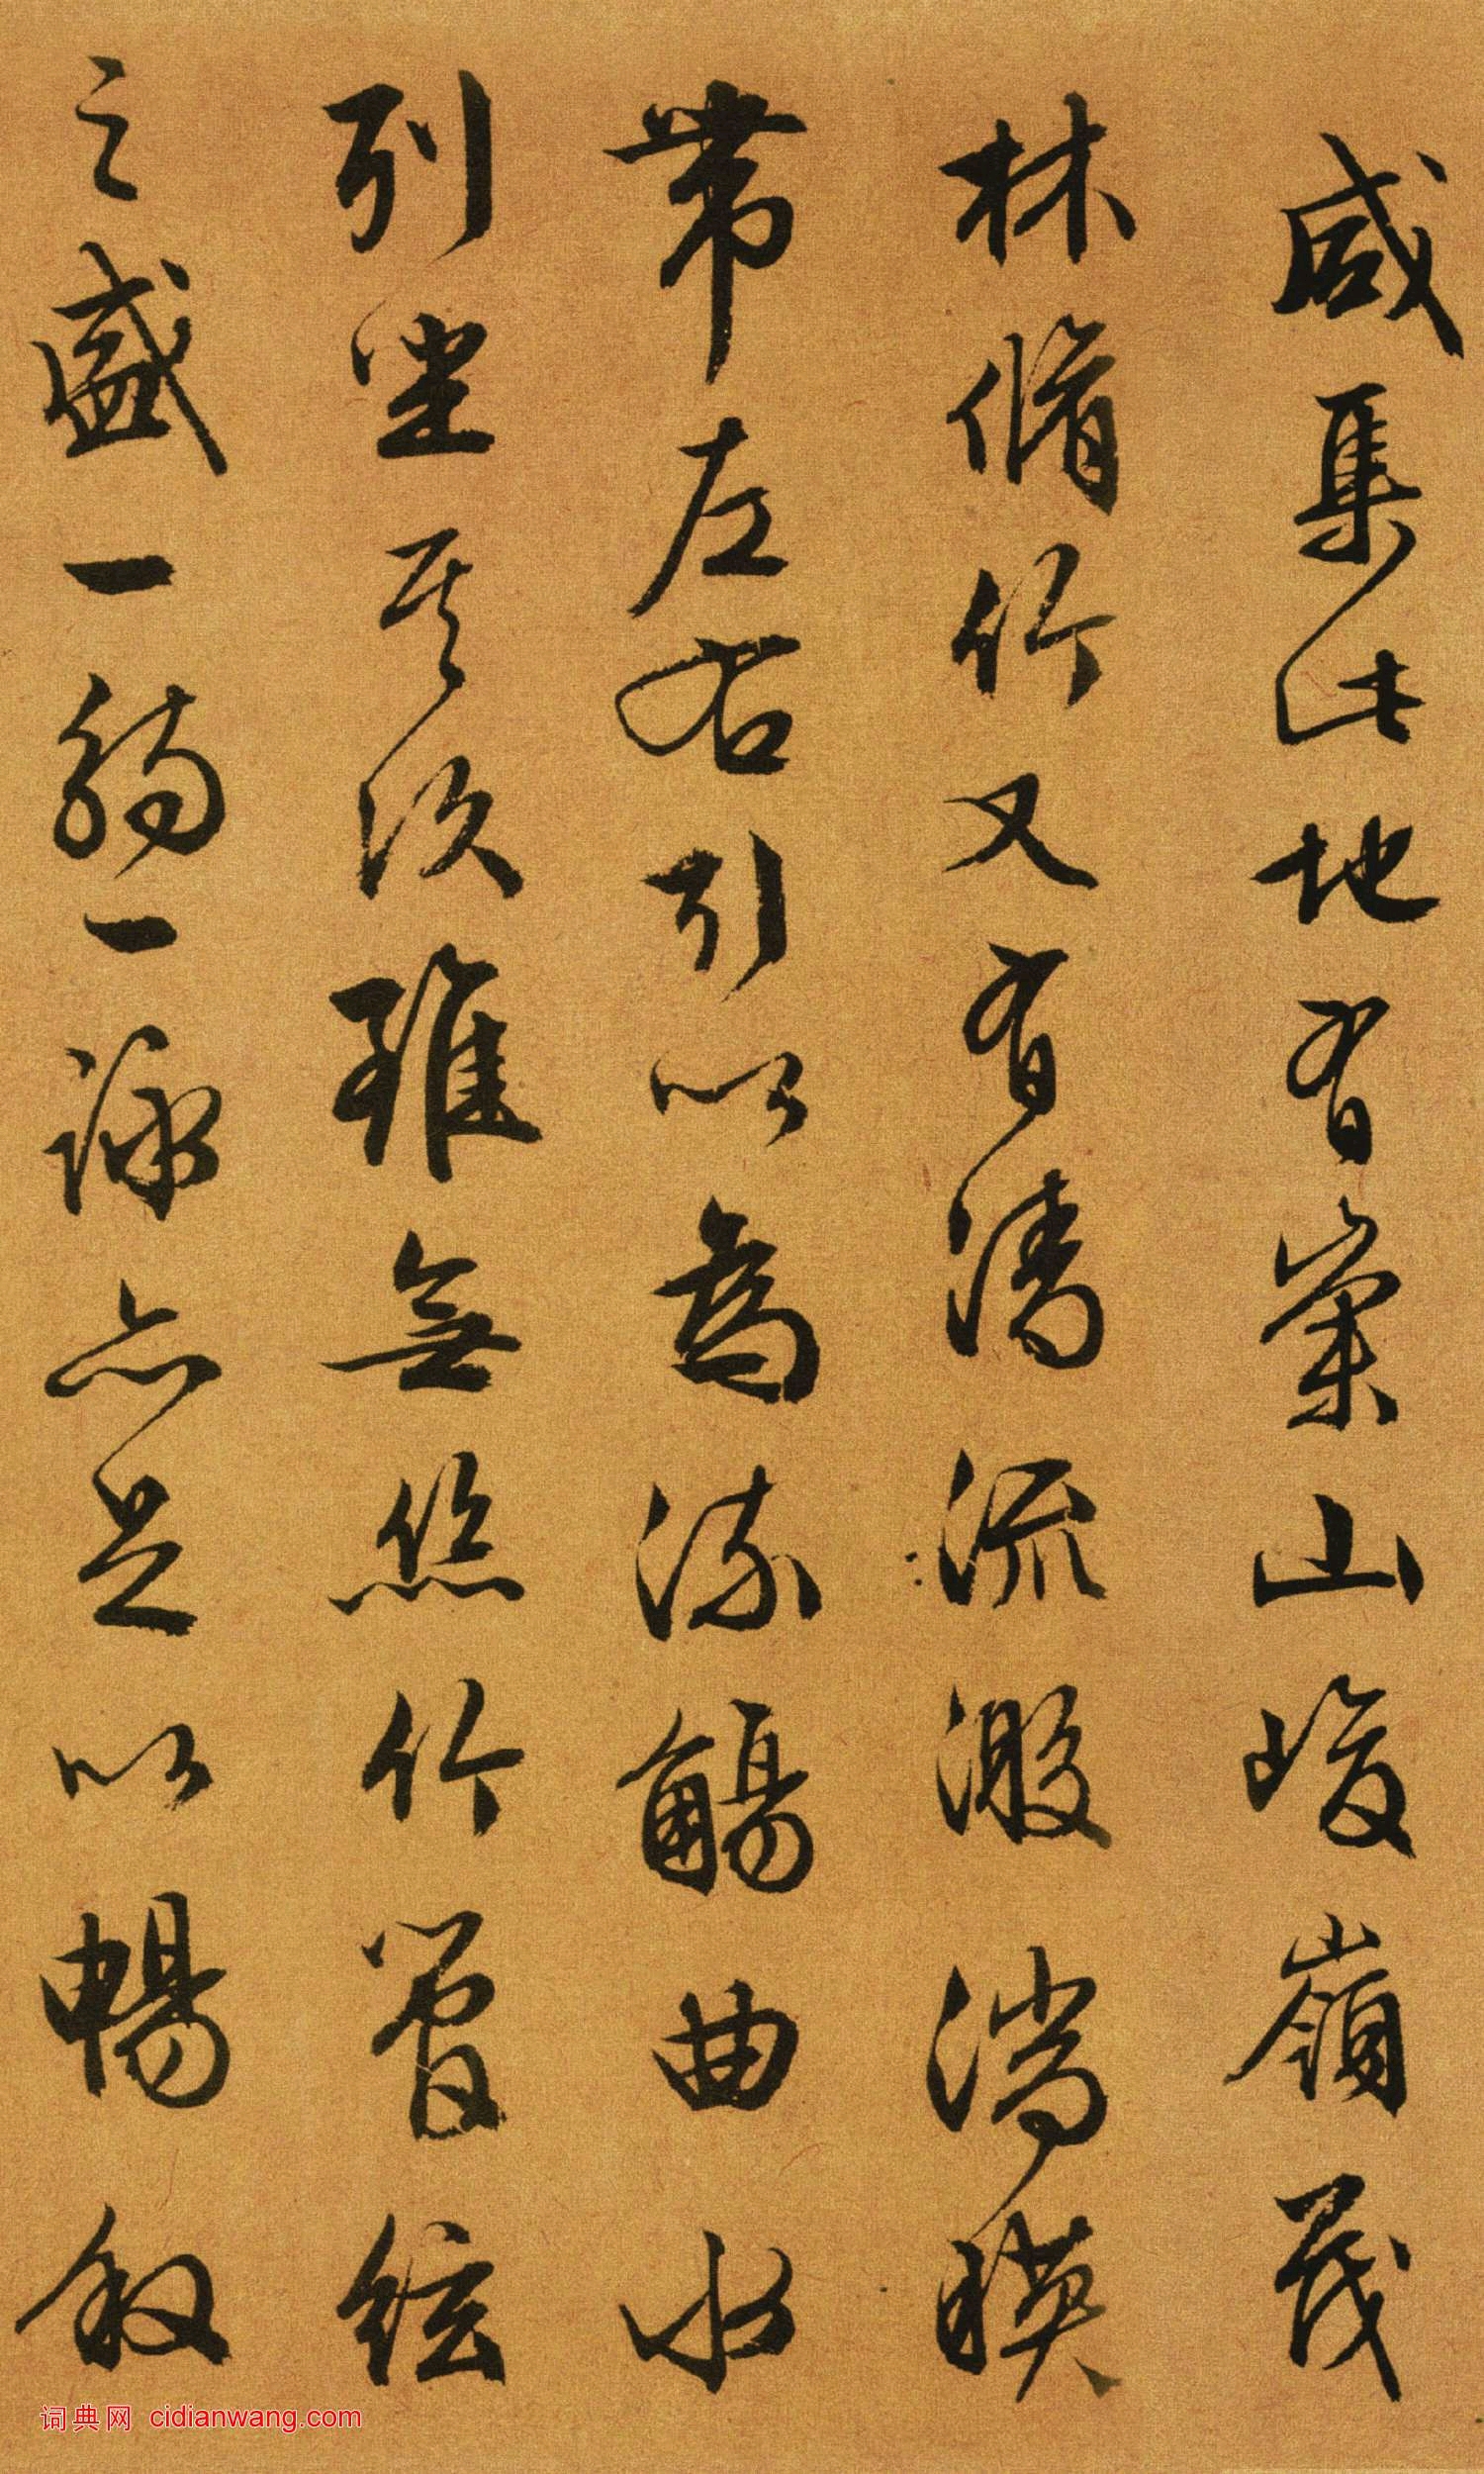 咸集此地有崇山峻嶺茂
林脩竹又有清流激湍暎
帶左右引以為流觴曲水
列坐其次雖無絲竹管絃
之盛一觴一詠亦足以暢敘
词典网 cidianwang.com